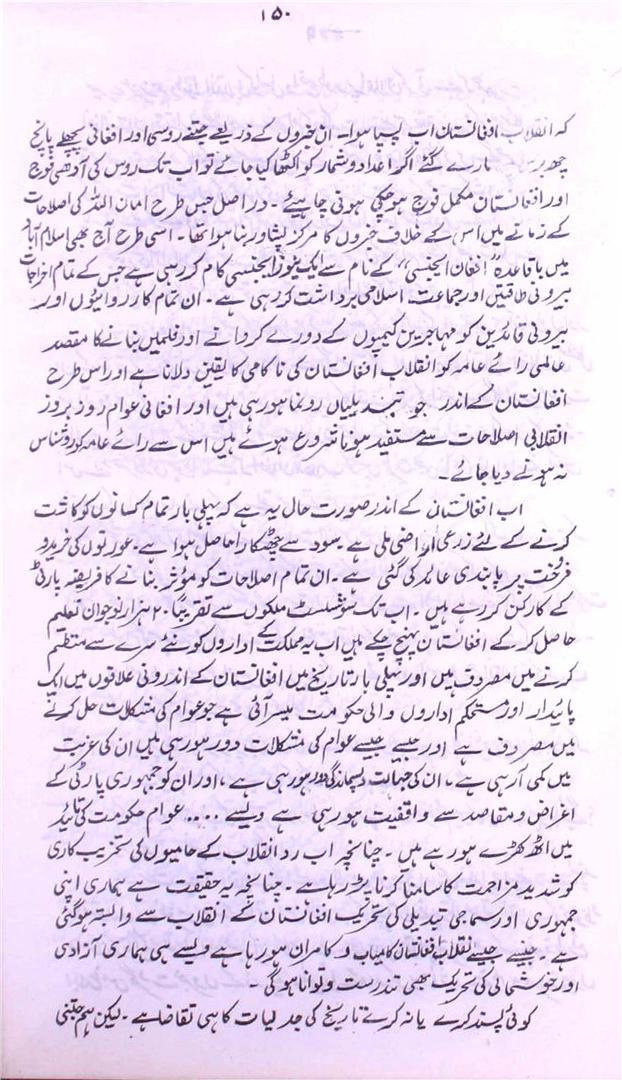 ۱۵۰
کہ انقلاب افغانستان اب پسپا ہوا۔ ان خبروں کے ذریعے جتنے روسی اور افغانی پچھلے پانچ
چھ برس مارے گئے اگر اعداد و شمار کو اکٹھا کیا جائے تو اب تک روس کی آدھی فوج
اور افغانستان مکمل فوج ہو چکی ہونی چاہیئے۔ دراصل جس طرح امان اللہ کی اصلاحات
کے زمانے میں اس کے خلاف خبروں کا مرکز پشاور بنا ہوا تھا۔ اسی طرح آج بھی اسلام آباد
میں باقاعدہ "افغان ایجنسی" کے نام سے ایک نیوز ایجنسی کام کر رہی ہے جس کے تمام اخراجات
بیرونی طاقتیں اور جماعت اسلامی برداشت کر رہی ہے۔ ان تمام کارروائیوں اور
بیرونی قائدین کو مہاجرین کیمپوں کے دورے کروانے اور فلمیں بنانے کا مقصد
عالمی رائے عامہ کو انقلاب افغانستان کی ناکامی کا یقین دلانا ہے اور اس طرح
افغانستان کے اندر جو تبدیلیاں رونما ہو رہی ہیں اور افغانی عوام روز بروز
انقلابی اصلاحات سے مستفید ہونا شروع ہوئے ہیں اس سے رائے عامہ کو روشناس
نہ ہونے دیا جائے۔
اب افغانستان کے اندر صورت حال یہ ہے کہ پہلی بار تمام کسانوں کو کاشت
کرنے کے لئے زرعی اراضی ملی ہے۔ سود سے چھٹکارا حاصل ہوا ہے۔ عورتوں کی خرید و
فروخت پر پابندی عائد کی گئی ہے۔ ان تمام اصلاحات کو مؤثر بنانے کا فریضہ پارٹی
کے کارکن کر رہے ہیں۔ اب تک سوشلسٹ ملکوں سے تقریباً ۲۰ ہزار نوجوان تعلیم
حاصل کر کے افغانستان پہنچ چکے ہیں اب یہ مملکت کے اداروں کو نئے سرے سے منظم
کرنے میں مصروف ہیں اور پہلی بار تاریخ میں افغانستان کے اندرونی علاقوں میں ایک
پائیدار اور مستحکم اداروں والی حکومت میسر آئی ہے جو عوام کی مشکلات حل کرنے
میں مصروف ہے اور جیسے جیسے عوام کی مشکلات دور ہو رہی ہیں ان کی غربت
میں کمی آ رہی ہے۔ ان کی جہالت و پسماندگی دور ہو رہی ہے، اور ان کو جمہوری پارٹی کے
اغراض و مقاصد سے واقفیت ہو رہی ہے ویسے .... عوام حکومت کی تائید
میں اٹھ کھڑے ہو رہے ہیں۔ چنانچہ اب رد انقلاب کے حامیوں کی تخریب کاری
کو شدید مزاحمت کا سامنا کرنا پڑ رہا ہے۔ چنانچہ یہ حقیقت ہے ہماری اپنی
جمہوری اور سماجی تبدیلی کی تحریک افغانستان کے انقلاب سے وابستہ ہو گئی
ہے۔ جیسے جیسے انقلاب افغانستان کامیاب و کامران ہو رہا ہے ویسے ہی ہماری آزادی
اور خوشحالی کی تحریک بھی تندرست و توانا ہوگی۔
کوئی پسند کرے یا نہ کرے تاریخ کی جدلیات کا ہی تقاضا ہے۔ لیکن ہم جتنی